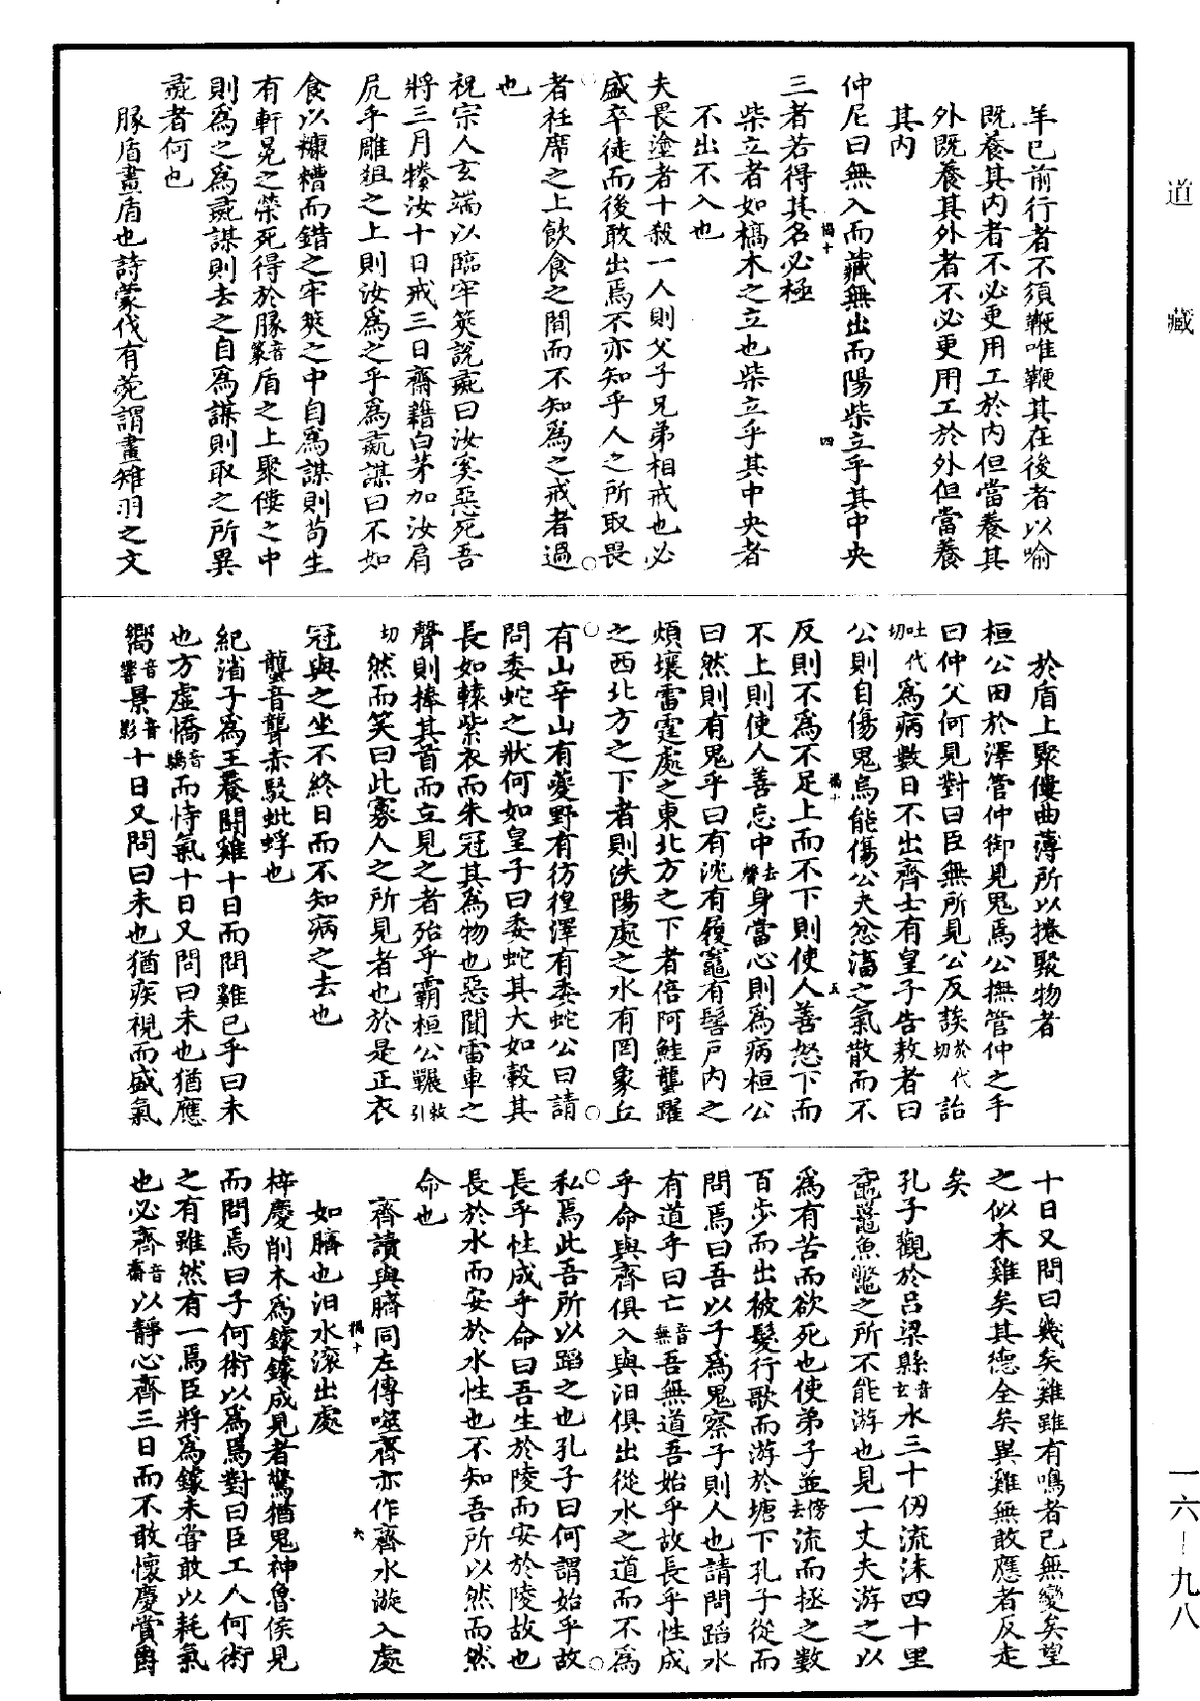 道藏
羊已前行者不須鞭唯鞭其在後者以喻
既養其內者不必更用工於內但當養其
外既養其外者不必更用工於外但當養
其內
仲尼曰無入而藏無出而陽柴立乎其中央
三者若得其名必極
柴立者如槁木之立也柴立乎其中央者
不出不入也
夫畏塗者十殺一人則父子兄弟相戒也必
盛卒徒而後敢出焉不亦知乎人之所取畏
者袵席之上飲食之間而不知為之戒者過
也
祝宗人玄端以臨牢筴說彘曰汝奚惡死吾
將三月㹖汝十日戒三日齋藉白茅加汝肩
尻乎雕俎之上則汝為之乎為彘謀曰不如
食以糠糟而錯之牢筴之中自為謀則苟生
有軒冕之榮死得於腞音篆盾之上聚僂之中
則為之為彘謀則去之自為謀則取之所異
彘者何也
腞盾畫盾也詩蒙伐有菀謂畫雉羽之文
於盾上聚僂曲薄所以捲聚物者
桓公田於澤管仲御見鬼焉公撫管仲之手
曰仲父何見對曰臣無所見公反誒於代切詒
吐代切為病數日不出齊士有皇子告敖者曰
公則自傷鬼烏能傷公夫忿滀之氣散而不
反則不為不足上而不下則使人善怒下而
不上則使人善忘中去聲身當心則為病桓公
曰然則有鬼乎曰有沈有履竈有髻戶內之
煩壤雷霆處之東北方之下者倍阿鮭蠪躍
之西北方之下者則泆陽處之水有罔象丘
有山辛山有夔野有彷徨澤有委蛇公曰請
問委蛇之狀何如皇子曰委蛇其大如轂其
長如轅紫衣而朱冠其為物也惡聞雷車之
聲則捧其首而立見之者殆乎霸桓公囅敕引
切然而笑曰此寡人之所見者也於是正衣
冠與之坐不終日而不知病之去也
蠪音聾赤駁蚍蜉也
紀渻子為王養鬭雞十日而問雞已乎曰未
也方虛憍音驕而恃氣十日又問曰未也猶應
嚮音響景音影十日又問曰未也猶疾視而盛氣
十日又問曰幾矣雞雖有鳴者已無變矣望
之似木雞矣其德全矣異雞無敢應者反走
矣
孔子觀於呂梁縣音玄水三十仞流沫四十里
黿鼉魚鱉之所不能游也見一丈夫游之以
為有苦而欲死也使弟子並傍去流而拯之數
百步而出被髮行歌而游於塘下孔子從而
問焉曰吾以子為鬼察子則人也請問蹈水
有道乎曰亡音無吾無道吾始乎故長乎性成
乎命與齊俱入與汩俱出從水之道而不為
私焉此吾所以蹈之也孔子曰何謂始乎故
長乎性成乎命曰吾生於陵而安於陵故也
長於水而安於水性也不知吾所以然而然
命也
齊讀與臍同左傳噬齊亦作齊水漩入處
如臍也汩水滚出處
梓慶削木為鐻鐻成見者驚猶鬼神魯侯見
而問焉曰子何術以為焉對曰臣工人何術
之有雖然有一焉臣將為鐻未嘗敢以耗氣
也必齊音齋以靜心齊三日而不敢懷慶賞爵
一六–九八